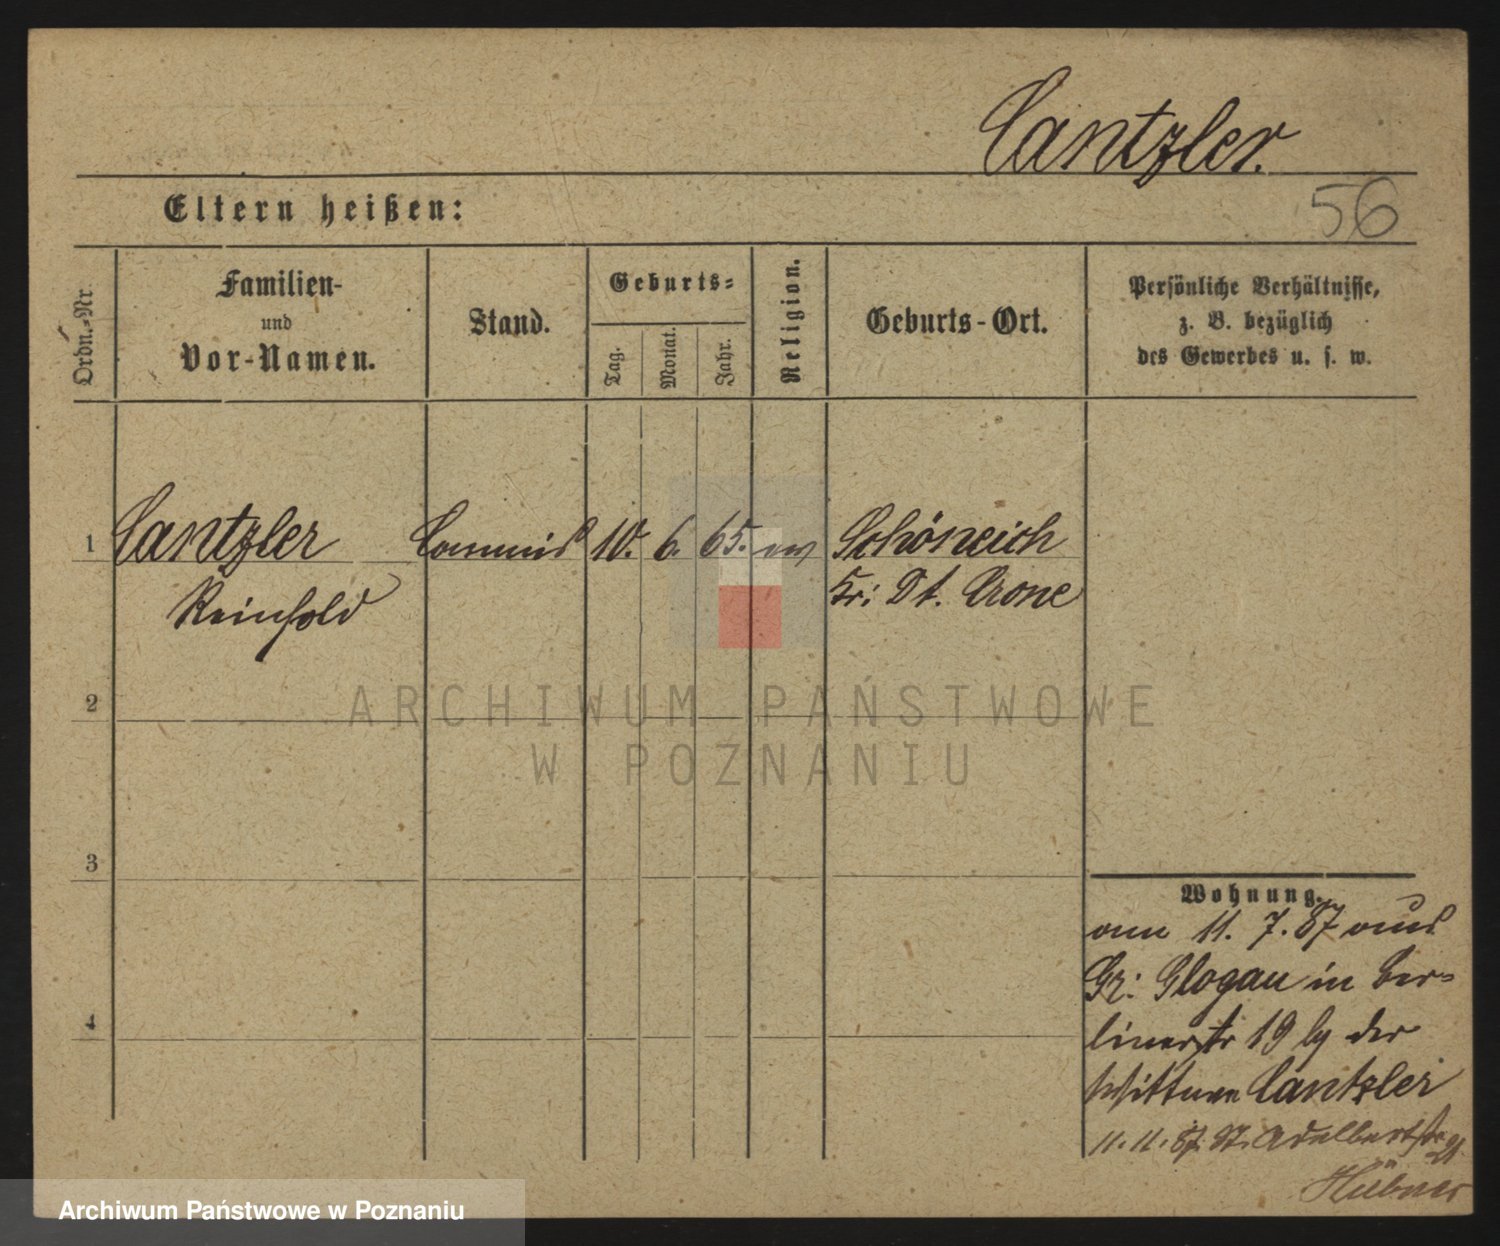 Cantzler.
56
Eltern heißen:
Ordn.-Nr.
Familien-
und
Vor-Namen.
Stand.
Geburts-
Tag.
Monat.
Jahr.
Religion.
Geburts-Ort.
Persönliche Verhältnisse,
z. B. bezüglich
des Gewerbes u. s. w.
1 Cantzler Commis 10. 6. 65. ev Schöneich
Reinhold Kr: Dt. Crone
2
3
4
Wohnung.
am 11. 7. 87 aus
Gr: Glogau in Ber-
linerstr 19 by der
Wittwe Cantzler
11. 11. 87. St. Adalbertstr 21
Hübner
ARCHIWUM PAŃSTWOWE
W POZNANIU
Archiwum Państwowe w Poznaniu